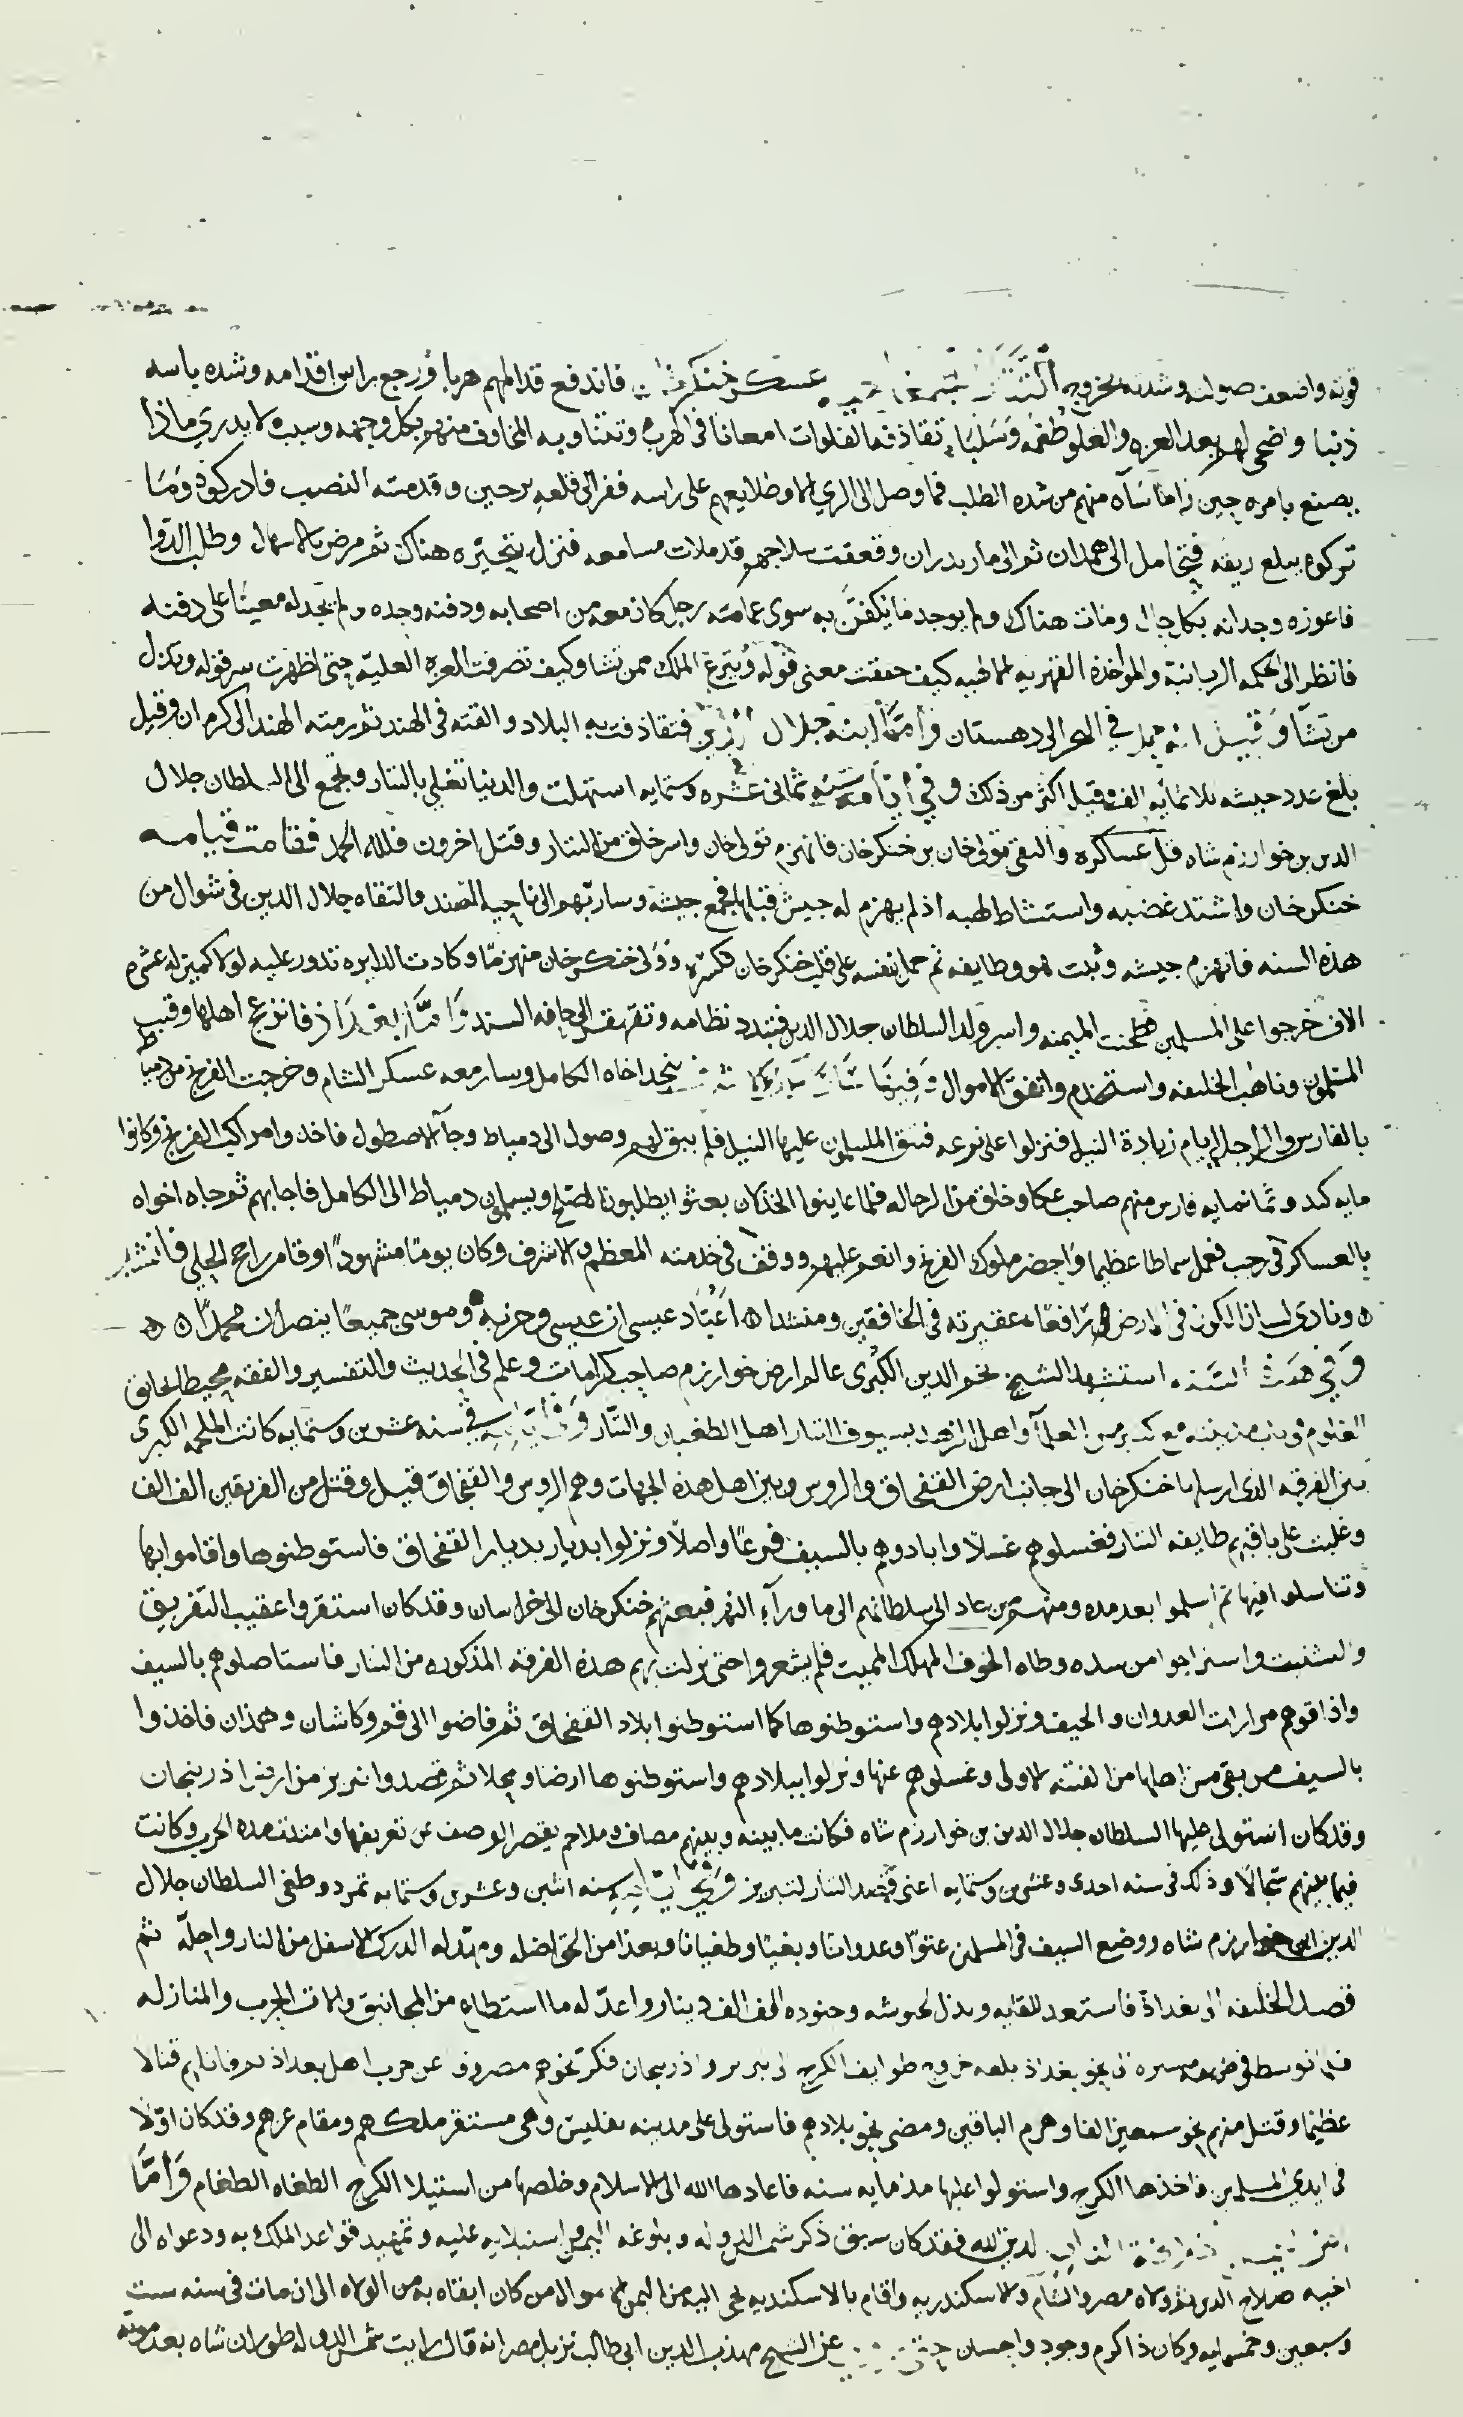 قوته واضعف صولته وشدته بخروج التتار عسكر خنكزخان فاندفع قدامهم هربا ورجع براس اقدامه وشده باسه
ذنبا واضحى لهم بعد العزه والعلو طعمه وسلبا تقاذفه الفلوات امعانا فى الهرب وتتناوبه المخاوف منهم بكل وجهه وسبب لا يدري ماذا
يصنع بامره حين داما سآه منهم من شده الطلب فما وصل الى الري الا وطلايعهم على راسه ففر الى قلعه برحين وقد مسه النصب فادركوه وما
تركوه يبلع ريقه فتحامل الى همدان ثم الى مازندران وقعقعت سلاحهم قد ملات مسامعه فنزل ببحيره هناك ثم مرض بالاسهال وطلب الدوا
فاعوزه وجدانه بكل حال ومات هناك ولم يوجد ما يكفن به سوى عمامته رجل كان معه من اصحابه ودفنه وحده ولم يجد له معينا على دفنه
فانظر الى الحكمه الربانية والمواخذه القهريه كيف حققت معنى قوله وتنزع الملك ممن تشا وكيف تصرفت العزه العليه حتى اظهرت سر قوله وتذل
من تشآ وقيل انه حمل في البحر الى دهستان وأما ابنه جلال الدين فتقاذفت به البلاد والقته فى الهند ثم رمته الهند الى كرمان وقيل
بلغ عدد جيشه ثلاثمايه الف وقيل اكثر من ذلك وفي سنه ثمانى عشره وستمايه استهلت والدنيا تغلى بالتتار وتجمع الى السلطان جلال
الدين بن خوارزم شاه فل عساكره والتقى تولى خان بن خنكزخان فانهزم تولى خان واسر خلق من التتار وقتل اخرون فلله الحمد فقامت قيامه
خنكزخان واشتد غضبه واستشاط لهبه اذ لم يهزم له جيش قبلها فجمع جيشه وسار بهم الى ناحيه الهند والتقاه جلال الدين فى شوال من
هذه السنه فانهزم جيشه وثبت هو وطايفه ثم حمل بنفسه على قلب خنكزخان فكسره وولى خنكزخان منهزما وكادت الدايره تدور عليه لولا كمين له عشره
الاف خرجوا على المسلمين فطحنت الميمنه واسر ولد السلطان جلال الدين فتبدد نظامه وتقهقر الى حافه السند واما بغداذ فانزعج اهلها وقنت
المسلمون وتاهب الخليفه واستخدم وانفق الاموال وفيها ينجد اخاه الكامل وسار معه عسكر الشام وخرجت الفرنج من دمياط
بالفارس والراجل ايام زيادة النيل فنزلوا على ترعه فبثق المسلمون عليها النيل فلم يبق لهم وصول الى دمياط وجآ الاصطول فاخذوا مراكب الفرنج وكانوا
مايه كند وثمانمايه فارس منهم صاحب عكا وخلق من الرجاله فلما عاينوا الخذلان بعثوا يطلبون الصلح ويسلمون دمياط الى الكامل فاجابهم ثم جاه اخواه
بالعساكر فى رجب فعمل سماطا عظيما واحضر ملوك الفرنج وانعم عليهم ووقف فى خدمته المعظم والاشرف وكان يوما مشهودا وقام راجح الحلي فانشد
ونادى لسان الكون فى الارض رافعا عقيرته فى الخافقين ومنشدا اعباد عيسى ان عيسى وحزبه وموسى جميعا ينصران محمدا
وفي هذه السنه استشهد الشيخ نجم الدين الكبرى عالم ارض خوارزم صاحب كرامات وعلم فى الحديث والتفسير والفقه محيط الحانق
العلوم وباب مدينته مع كثير من العلمآ واهل الزهد بسيوف التتار اهل الطغيان والنار وفي سنه عشرين وستمايه كانت الملحمه الكبرى
بين الفرقه الذى ارسلها خنكزخان الى جانب ارض القفجاق والروس وبين اهل هذه الجهات وهم الروس والقفجاق قتيل وقتل من الفريقين الف الف
وغلبت على باقيهم طايفه التتار فغسلوهم غسلا وابادوهم بالسيف فرعا واصلا ونزلوا بديار بديار القفجاق فاستوطنوها واقاموا بها
وتناسلوا فيها ثم اسلموا بعد مده ومنهم من عاد الى سلطانهم الى ما ورآء النهر فبعثهم خنكزخان الى خراسان وقد كان استقروا عقيب التفريق
والتشتيت واستراحوا من شده وطاه الخوف المهلك المميت فلم يشعروا حتى نزلت بهم هذه الفرقه المذكوره من التتار فاستاصلوهم بالسيف
واذاقوهم مرارات العدوان والحيف ونزلوا بلادهم واستوطنوها كما استوطنوا بلاد القفجاق ثم فاضوا الى قم وكاشان وهمذان فاخذوا
بالسيف من بقى من اهلها من الفتنه الاولى وغسلوهم عنها ونزلوا ببلادهم واستوطنوها ارضا ومحلا ثم قصدوا تبريز من ارض اذربيجان
وقد كان استولى عليها السلطان جلال الدين بن خوارزم شاه فكانت ما بينه وبينهم مصاف وملاحم يقصر الوصف عن تعريفها وامتدت مده الحرب وكانت
فيما بينهم سجالا وذلك فى سنه احدى وعشرين وستمايه اعنى قصد التتار لتبريز وفي سنه اثنين وعشرين وستمايه تمرد وطغى السلطان جلال
الدين ابن خوارزم شاه ووضع السيف فى المسلمين عتوا وعدوانا وبغيا وطغيانا وبعدا من الحق اضله ومهد له الدرك الاسفل من النار واحله ثم
قصد الخليفه الى بغداذ فاستعد للقايه وبذل لجيوشه وجنوده الف الف دينار واعد له ما استطاع من المجانيق والات الحرب والمنازله
فلما توسط فى طريقه مسيره الى نحو بغداذ بلغه خروج طوايف الكرج الى تبريز واذربيجان فكر نحوهم مصروف عن حرب اهل بغداذ قتالا
عظيما وقتل منهم نحو سبعين الفا وهزم الباقين ومضى نحو بلادهم فاستولى على مدينه تفليس وهى مستقر ملكهم ومقام عزهم وقد كان اولا
فى ايدي المسلمين فاخذها الكرج واستولوا عليها مذ مايه سنه فاعادها الله الى الاسلام وخلصها من استيلا الكرج الطغاه الطغام وأما
لدين الله فقد كان سبق ذكر شمس الدوله وبلوغه اليمن واستيلايه عليه وتمهيد قواعد الملك به ودعواه الى
اخيه صلاح الدين ثم ولاه مصر والشام والاسكندريه واقام بالاسكندريه يجى اليه من اليمن اموال من كان ابقاه به من الولاه الى ان مات فى سنه ست
وسبعين وخمسمايه وكان ذا كرم وجود واحسان عن الشيخ مهذب الدين ابى طالب نزيل مصر انه قال رايت شمس الدوله طوران شاه بعد موته